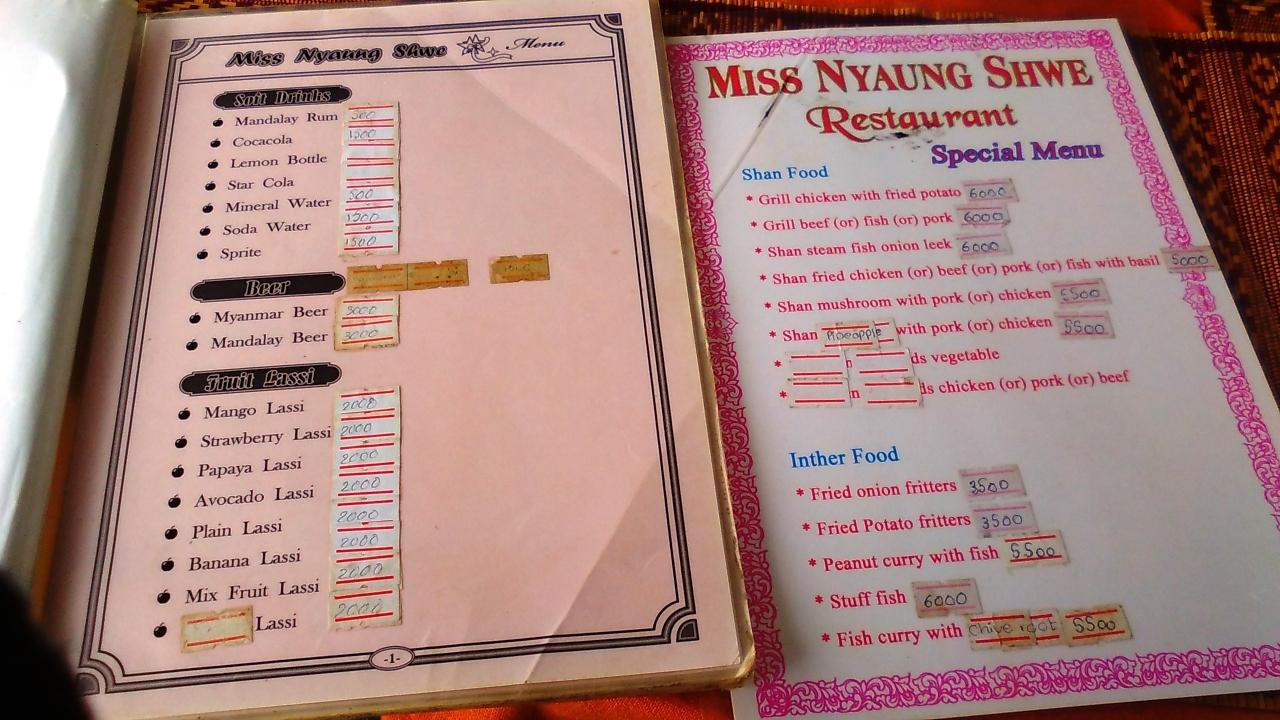 Miss Nyaung Shwe Menu
Soft Drinks
Mandalay Rum
Cocacola 1500
Lemon Bottle
Star Cola
Mineral Water 500
Soda Water 1500
Sprite 1500
Beer
Myanmar Beer 3000
Mandalay Beer 3000
Fruit Lassi
Mango Lassi 2000
Strawberry Lassi 2000
Papaya Lassi 2000
Avocado Lassi 2000
Plain Lassi 2000
Banana Lassi 2000
Mix Fruit Lassi 2000
Lassi 2000
-1-
MISS NYAUNG SHWE
Restaurant
Special Menu
Shan Food
* Grill chicken with fried potato 6000
* Grill beef (or) fish (or) pork 6000
* Shan steam fish onion leek 6000
* Shan fried chicken (or) beef (or) pork (or) fish with basil 5000
* Shan mushroom with pork (or) chicken 5500
* Shan Pineapple with pork (or) chicken 5500
* n ds vegetable
* n ds chicken (or) pork (or) beef
Inther Food
* Fried onion fritters 3500
* Fried Potato fritters 3500
* Peanut curry with fish 5500
* Stuff fish 6000
* Fish curry with chive root 5500